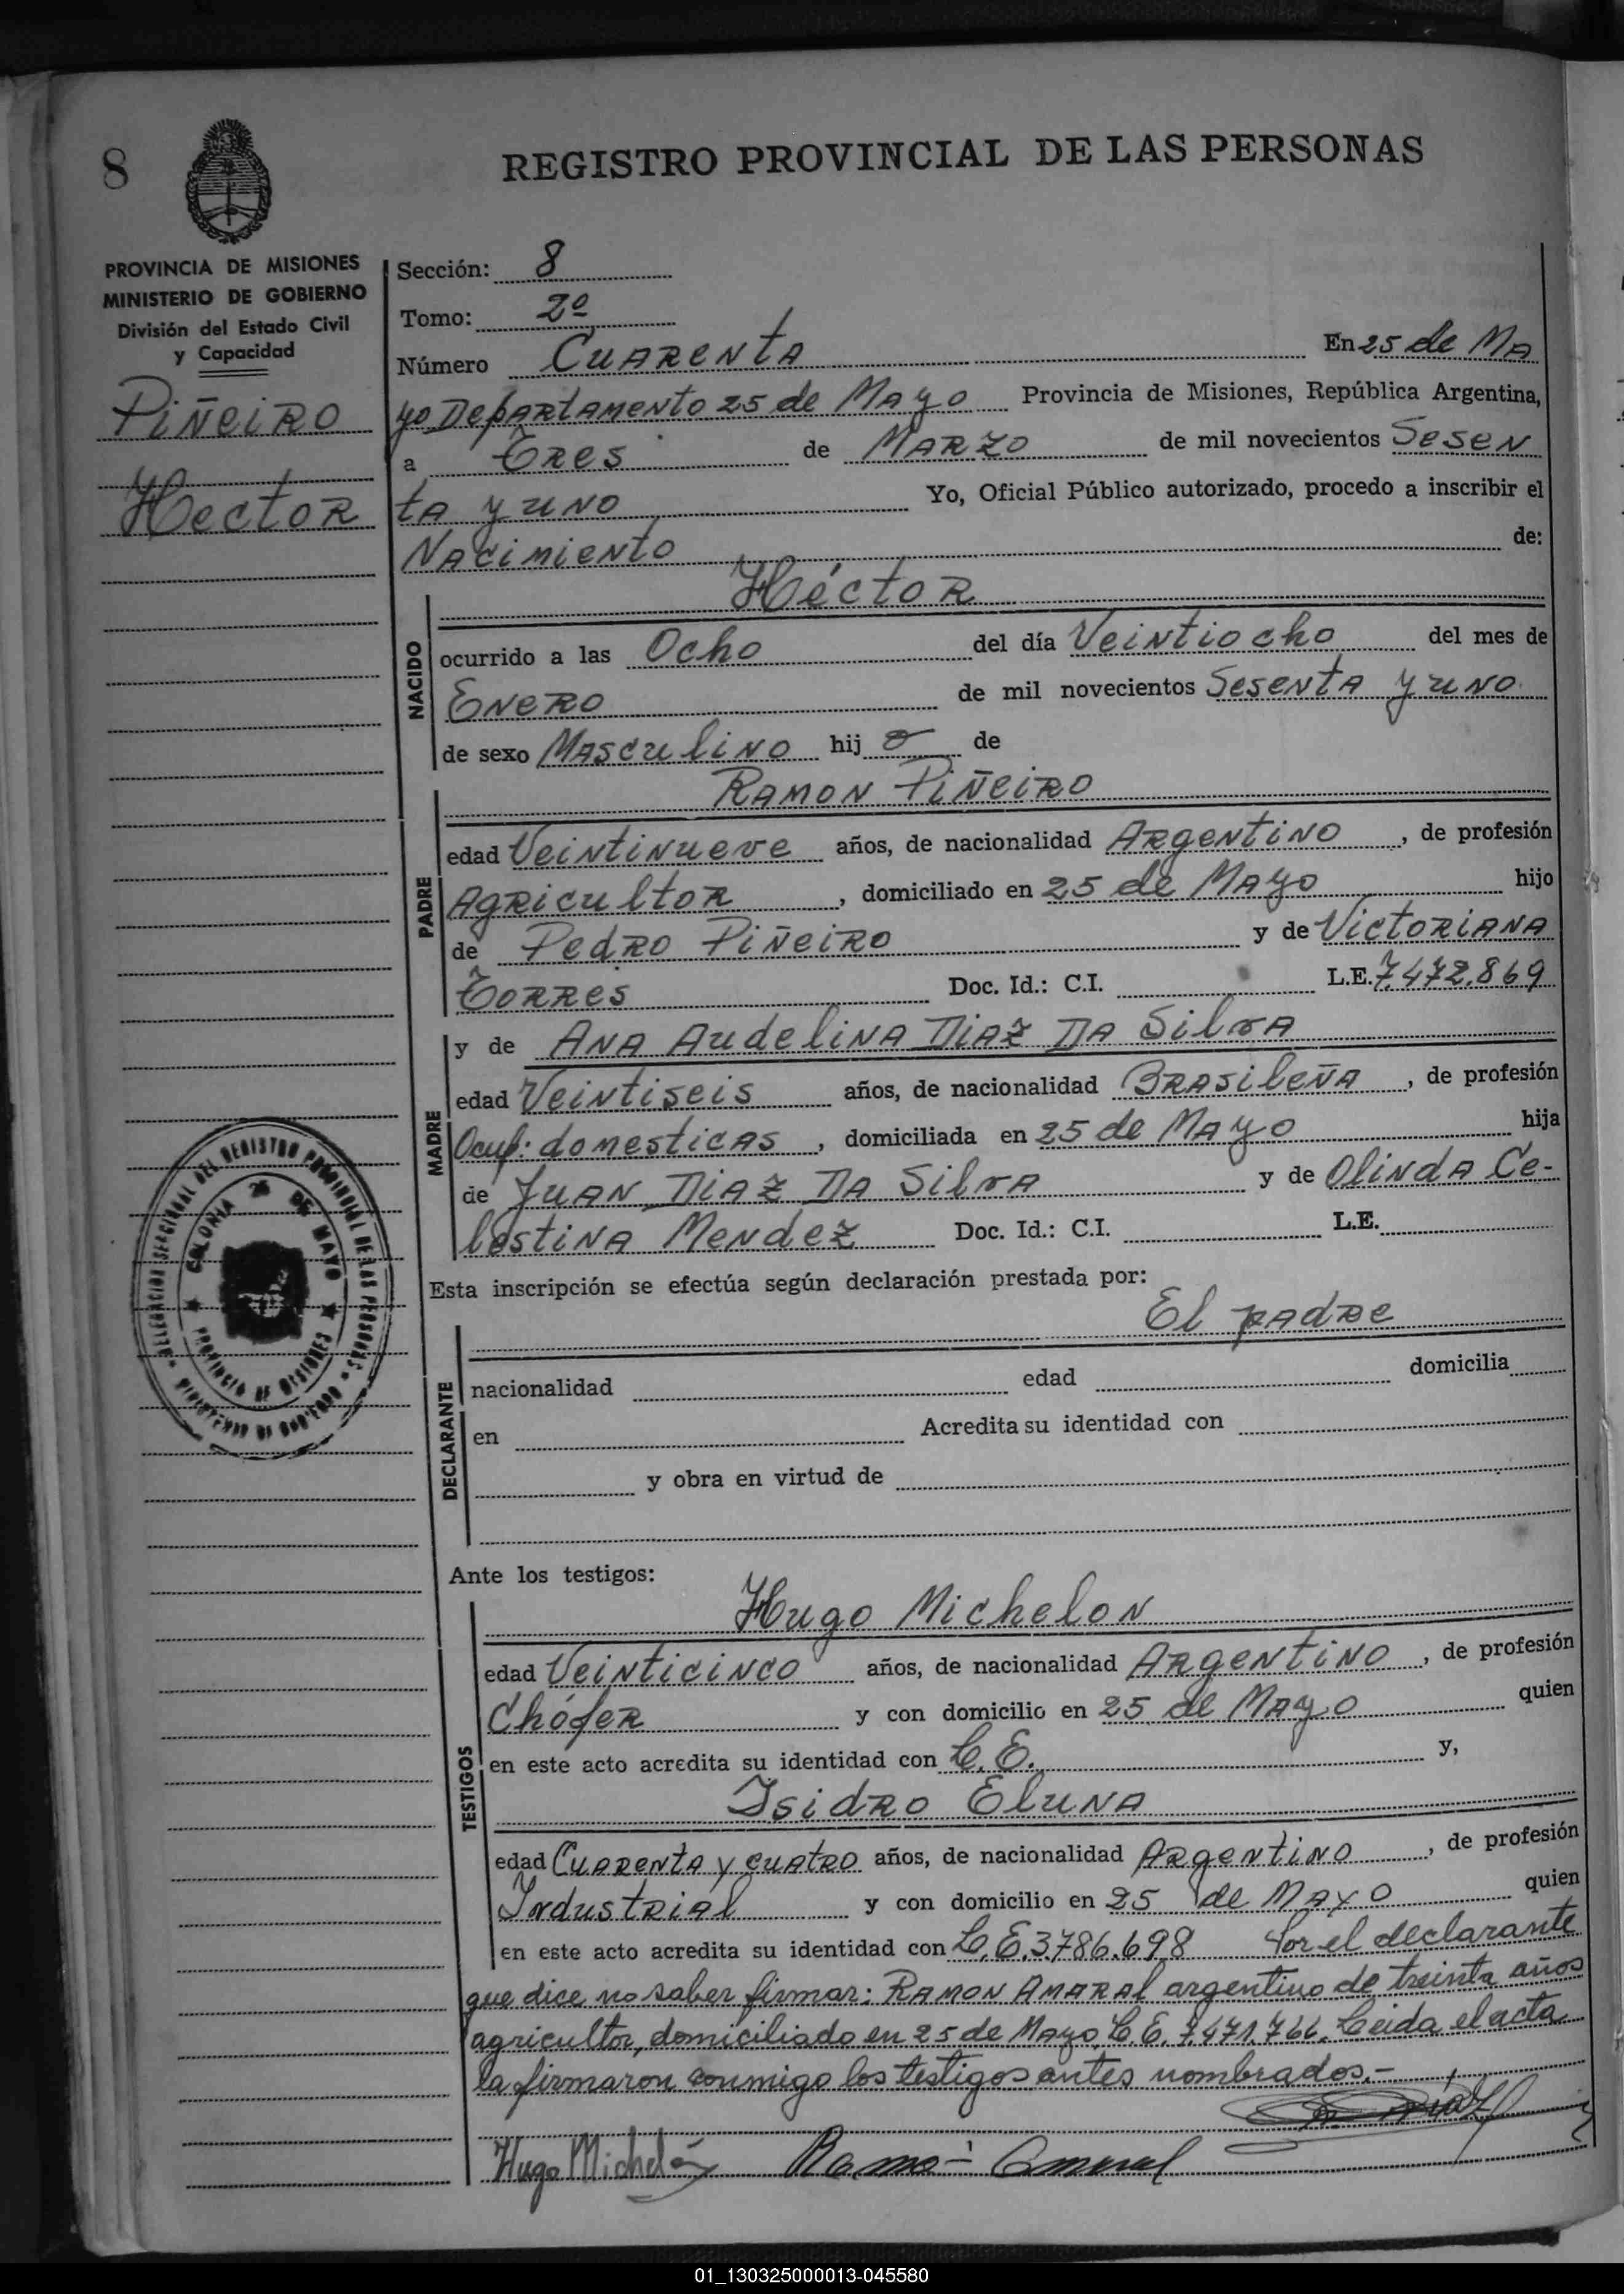 8
REGISTRO PROVINCIAL DE LAS PERSONAS
PROVINCIA DE MISIONES
MINISTERIO DE GOBIERNO
División del Estado Civil
y Capacidad
PiÑeiRO
HectoR
Sección: 8
Tomo: 2º
Número CUARENtA En 25 de MA
yo DepARtAMeNto 25 de MAyo Provincia de Misiones, República Argentina,
a tRes de MARZO de mil novecientos SeseN
tA y uNO Yo, Oficial Público autorizado, procedo a inscribir el
NAcimieNto de:
HéctoR
NACIDO
ocurrido a las Ocho del día VeiNtiocho del mes de
ENeRO de mil novecientos SeseNtA y uNO
de sexo MAsculiNO hij o de
RAMON PiÑeiRO
PADRE
edad VeiNtiNueve años, de nacionalidad ARgeNtiNO, de profesión
AgRicultoR, domiciliado en 25 de MAyo hijo
de PedRO PiÑeiRO y de VictoRiANA
toRRes Doc. Id.: C.I. L.E. 7.472.869
MADRE
y de ANA AudeliNA DiAz DA SilvA
edad Veintiseis años, de nacionalidad BRAsileÑA, de profesión
Ocup: domesticAs, domiciliada en 25 de MAyo hija
de JuAN DiAz DA SilvA y de OliNdA Ce-
lestiNA MeNdez Doc. Id.: C.I. L.E.
DELEGACION SECCIONAL DEL REGISTRO PROVINCIAL DE LAS PERSONAS
COLONIA 25 DE MAYO
PROVINCIA DE MISIONES
MINISTERIO DE GOBIERNO
Esta inscripción se efectúa según declaración prestada por:
El pAdRe
DECLARANTE
nacionalidad edad domicilia
en Acredita su identidad con
y obra en virtud de
Ante los testigos:
Hugo MicheloN
TESTIGOS
edad VeiNticiNco años, de nacionalidad ARgeNtiNO, de profesión
ChófeR y con domicilio en 25 de MAyo quien
en este acto acredita su identidad con L.E. y,
IsidRO EluNA
edad CuAReNtA y cuAtRO años, de nacionalidad ARgeNtiNO, de profesión
IndustRiAl y con domicilio en 25 de MAyO quien
en este acto acredita su identidad con L.E. 3.786.698 Por el declarante
que dice no saber firmar: RAMON AMARAl argentino de treinta años
agricultor, domiciliado en 25 de Mayo L.E. 7.471.766. Leida el acta
la firmaron conmigo los testigos antes nombrados.-
Hugo Michelón Ramon Amaral
01_130325000013-045580